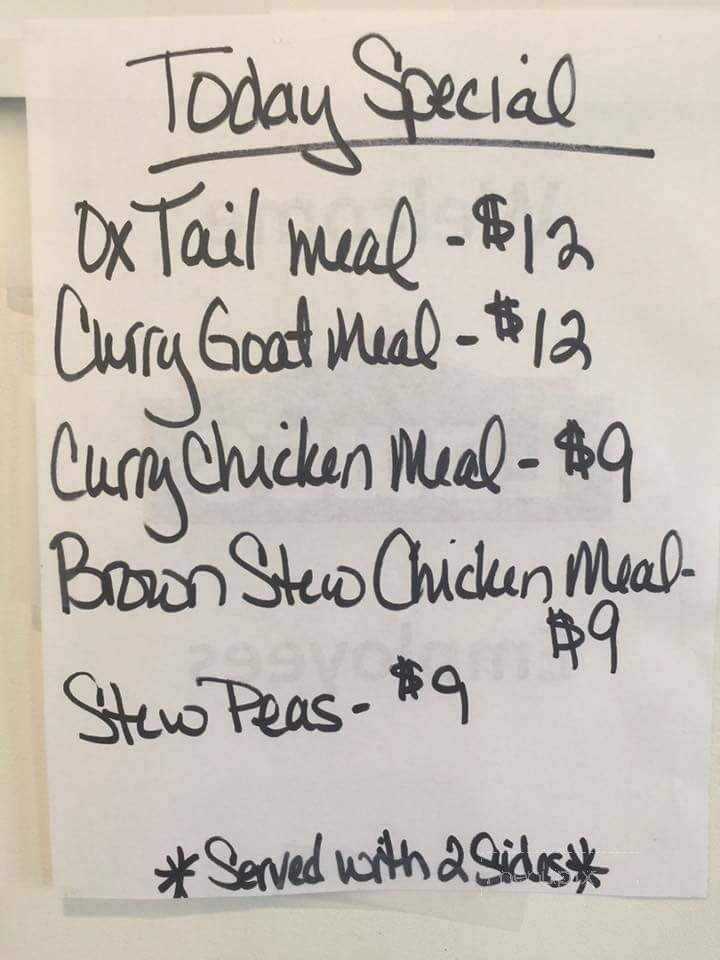 Today Special
Ox Tail meal - $12
Curry Goat Meal - $12
Curry Chicken Meal - $9
Brown Stew Chicken Meal-
$9
Stew Peas - $9
*Served with 2 Sides*
Welcome
Employees